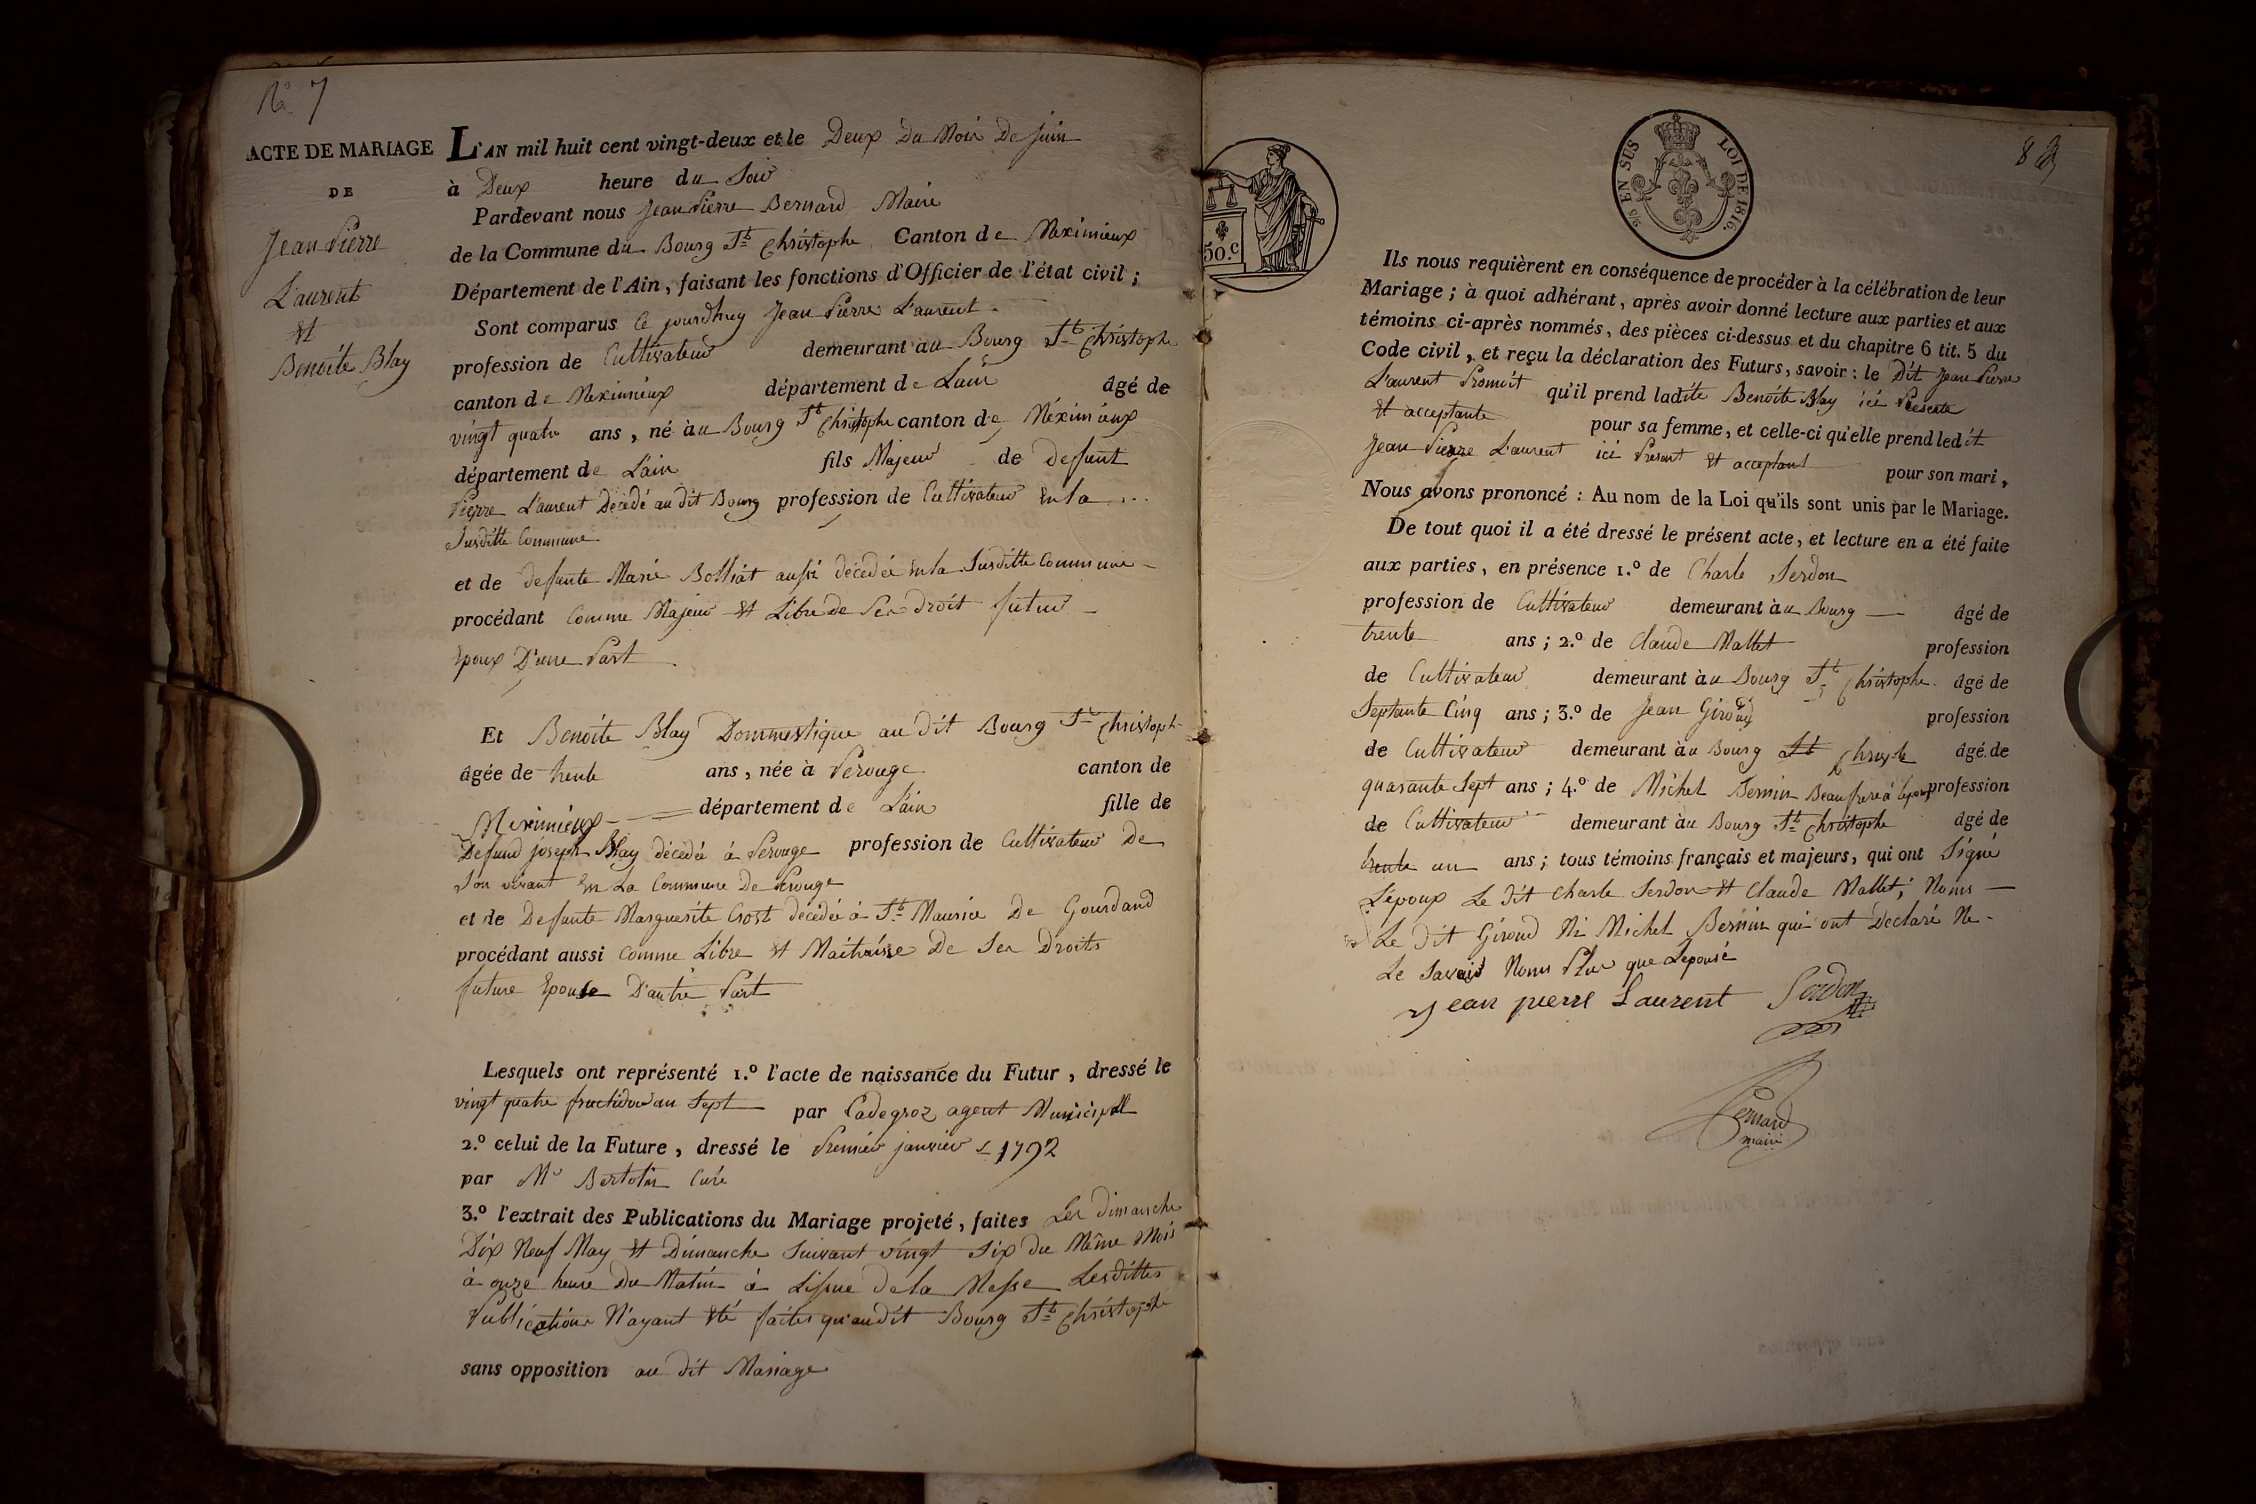 No. 7
ACTE DE MARIAGE
DE
Jean Pierre
Laurent
et
Benoite Blay
L'AN mil huit cent vingt-deux et le Deux du Mois de juin
à Deux heure du Soir
Pardevant nous Jean Pierre Bernard Maire
de la Commune du Bourg St. Christophe Canton de Meximieux
Département de l'Ain, faisant les fonctions d'Officier de l'état civil ;
Sont comparus Ce jourdhuy Jean Pierre Laurent
profession de Cultivateur demeurant au Bourg St. Christophe
canton de Meximieux département de Lain âgé de
vingt quatre ans, né au Bourg St Christophe canton de Méximieux
département de Lain fils Majeur de defunt
Pierre Laurent Décédé au dit Bourg profession de Cultivateur en la
Susditte Commune
et de defunte Marie Bolliat aussi décédée en la Susditte Commune
procédant Comme Majeur et Libre de Ses droit futur
Epoux D'une Part
Et Benoite Blay Dommestique au dit Bourg St Christoph
âgée de trente ans, née à Perouge canton de
Meximieux département de Lain fille de
Defund joseph Blay décédé à Perouge profession de Cultivateur De
Son vivant en La Commune De Perouge
et de Defunte Marguerite Crost décédée à St. Maurice De Gourdand
procédant aussi Comme Libre et Maitraise De Ses Droits
future Epouse D'autre Part
Lesquels ont représenté 1.º l'acte de naissance du Futur, dressé le
vingt quatre fructidor an Sept par Cadegroz agent Municipall
2.º celui de la Future, dressé le Premier janvier 1792
par Mr Bertolin Curé
3.º l'extrait des Publications du Mariage projeté, faites Les dimanche
Dix Neuf May et Dimanche Suivant vingt Six du Même Mois
à onze heure Du Matin à Lissue de la Messe Lesdittes
Publications N'ayant été faites qu'au dit Bourg St. Christophe
sans opposition au dit Mariage
50.c
EN SUS
LOI DE 1816.
8
Ils nous requièrent en conséquence de procéder à la célébration de leur
Mariage ; à quoi adhérant, après avoir donné lecture aux parties et aux
témoins ci-après nommés, des pièces ci-dessus et du chapitre 6 tit. 5 du
Code civil, et reçu la déclaration des Futurs, savoir : le Dit Jean Pierre
Laurent Promit qu'il prend ladite Benoite Blay ici Presente
et acceptante pour sa femme, et celle-ci qu'elle prend ledit
Jean Pierre Laurent ici Present et acceptant pour son mari,
Nous avons prononcé : Au nom de la Loi qu'ils sont unis par le Mariage.
De tout quoi il a été dressé le présent acte, et lecture en a été faite
aux parties, en présence 1.º de Charle Serdon
profession de Cultivateur demeurant au Bourg âgé de
trente ans ; 2.º de Claude Mallet profession
de Cultivateur demeurant au Bourg St. Christophe âgé de
Septante Cinq ans ; 3.º de Jean Giroud profession
de Cultivateur demeurant au Bourg St Christophe âgé de
quarante Sept ans ; 4.º de Michel Bernin Beau frere à lepoux profession
de Cultivateur demeurant au Bourg St. Christophe âgé de
trente un ans ; tous témoins français et majeurs, qui ont Signé
Lépoux Le dit Charle Serdon et Claude Mallet, Nonus
Le dit Giroud Ni Michel Bernin qui ont Déclaré Ne
Le Savoir Nonus Plus que Lepouse
Jean pierre Laurent Serdon
Bernard
maire